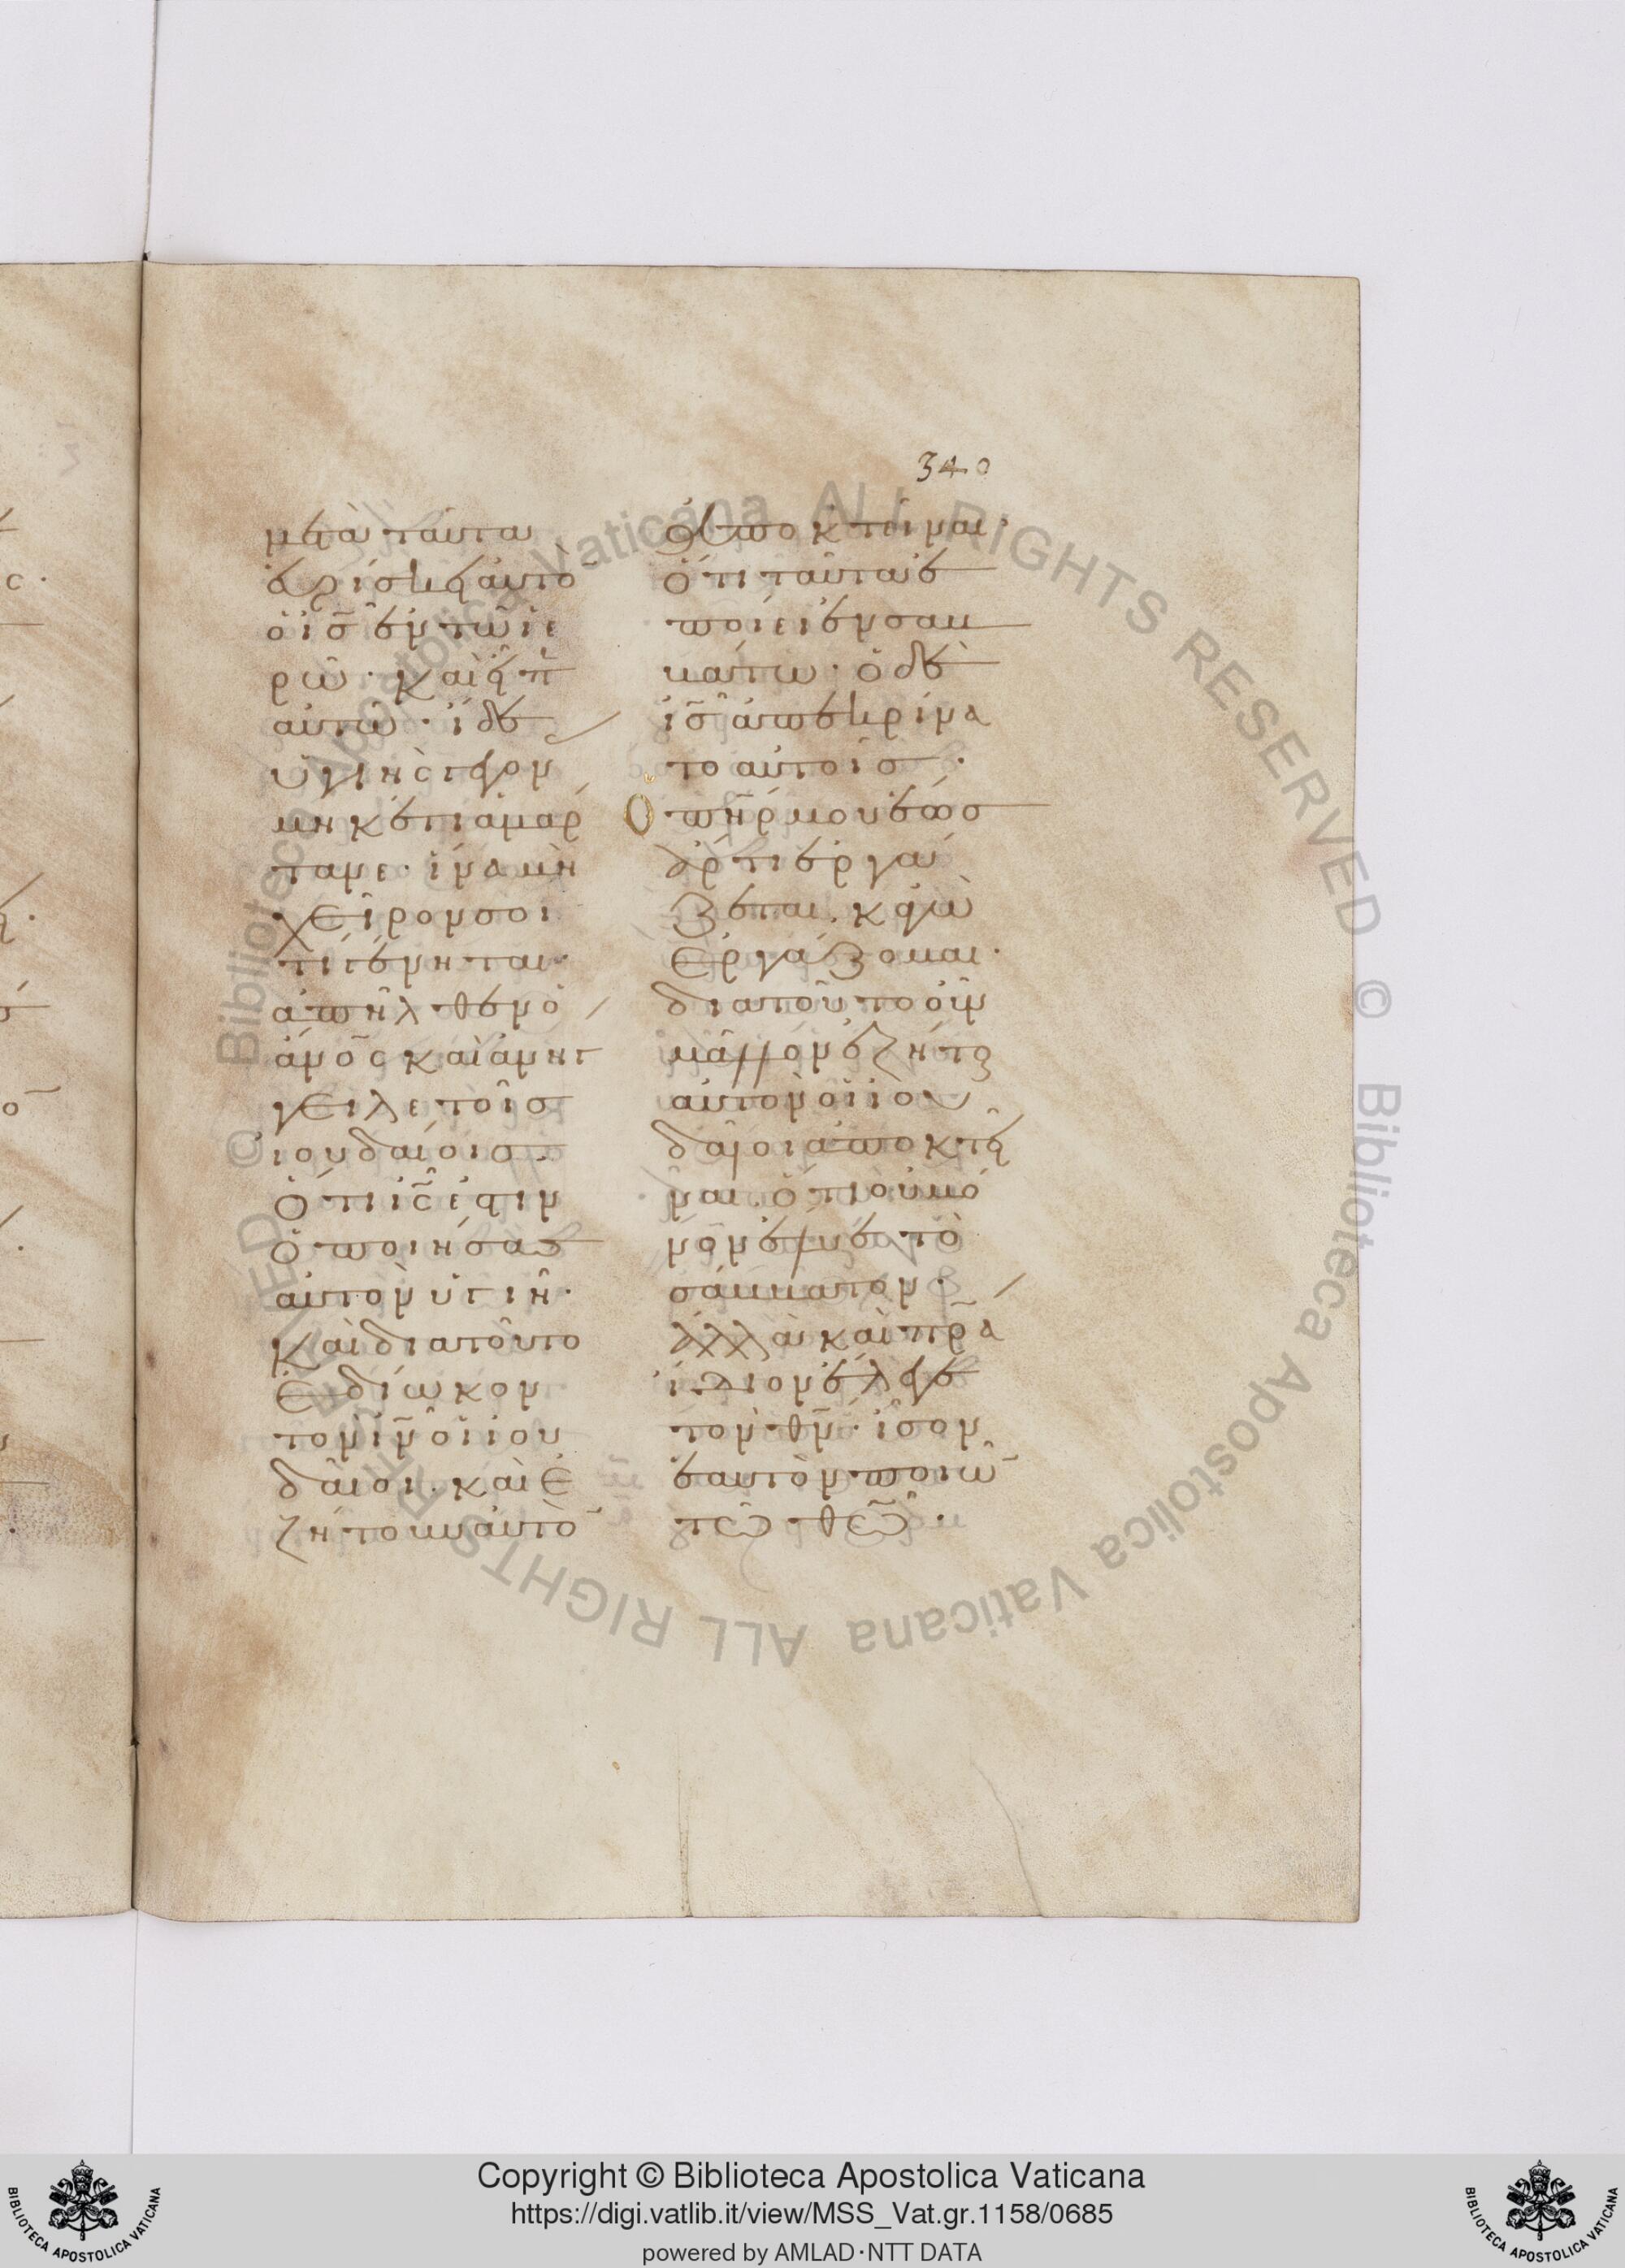 340
μετὰ ταῦτα
εὑρίσκει αὐτὸ̅
ὁ ι̅σ̅ ἐν τῷ ἱε
ρῷ· καὶ εἶπ̅
αὐτῷ· ἴδε
ὑγιὴς γέγον
μηκέτι ἁμάρ
τανε· ἵνα μὴ
χεῖρόν σοι
τι γένηται·
ἀπῆλθεν ὁ
ἄν̅ο̅ς̅ καὶ ἀνήγ
γειλε τοῖς
ἰουδαίοις·
ὅτι ι̅ς̅ ἐστιν
ὁ ποιήσας
αὐτὸν ὑγιῆ·
καὶ διὰ τοῦτο
ἐδίωκον
τὸν ι̅ν̅ οἱ ἰου
δαῖοι· καὶ ἐ
ζήτουν αὐτὸ̅
ἀποκτεῖναι·
ὅτι ταῦτα ἐ
ποίει ἐν σαβ
βάτω· ὁ δὲ
ι̅σ̅ ἀπεκρίνα
το αὐτοῖς·
Ὁ π̅η̅ρ̅ μου ἕως
ἄρτι ἐργά
ζεται· κἀγὼ
ἐργάζομαι·
διὰ τοῦτο οὖν
μᾶλλον ἐζήτου̅
αὐτὸν οἱ ἰου
δαῖοι ἀποκτεῖ
ναι· ὅτι οὐ μό
νον ἔλυε τὸ
σάββατον·
ἀλλὰ καὶ π̅ρ̅α̅
ἴδιον ἔλεγε
τὸν θ̅ν̅· ἴσον
ἑαυτὸν ποιῶ̅
τῶ θ̅ε̅ῶ̅·
Copyright © Biblioteca Apostolica Vaticana
https://digi.vatlib.it/view/MSS_Vat.gr.1158/0685
powered by AMLAD·NTT DATA
BIBLIOTECA APOSTOLICA VATICANA
BIBLIOTECA APOSTOLICA VATICANA
© Biblioteca Apostolica Vaticana ALL RIGHTS RESERVED © Biblioteca Apostolica Vaticana ALL RIGHTS RESERVED